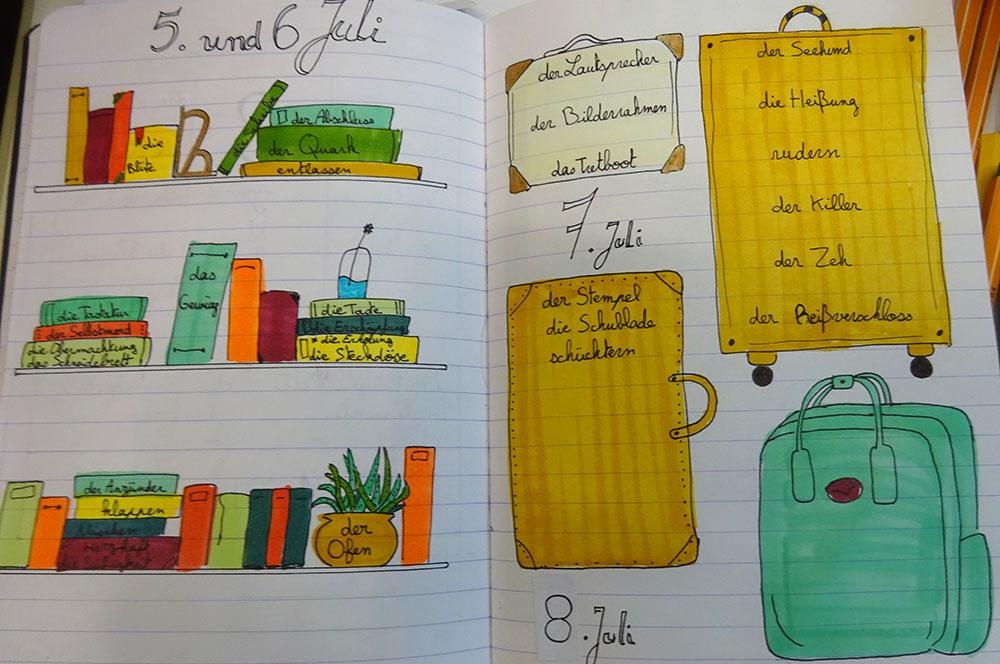 5. und 6 Juli
die
Blüte
der Abschluss
der Quark
entlassen
die Tastatur
der Selbstmord
die Übernachtung
das Schneidebrett
das
die Erschöpfung
* die Erholung
die Steckdose
der Anzünder
klappen
der
Ofen
der Lautsprecher
der Bilderrahmen
das Tretboot
7. Juli
der Stempel
die Schublade
schüchtern
der Seehund
die Heißung
rudern
der Killer
der Zeh
der Reißverschloss
8. Juli